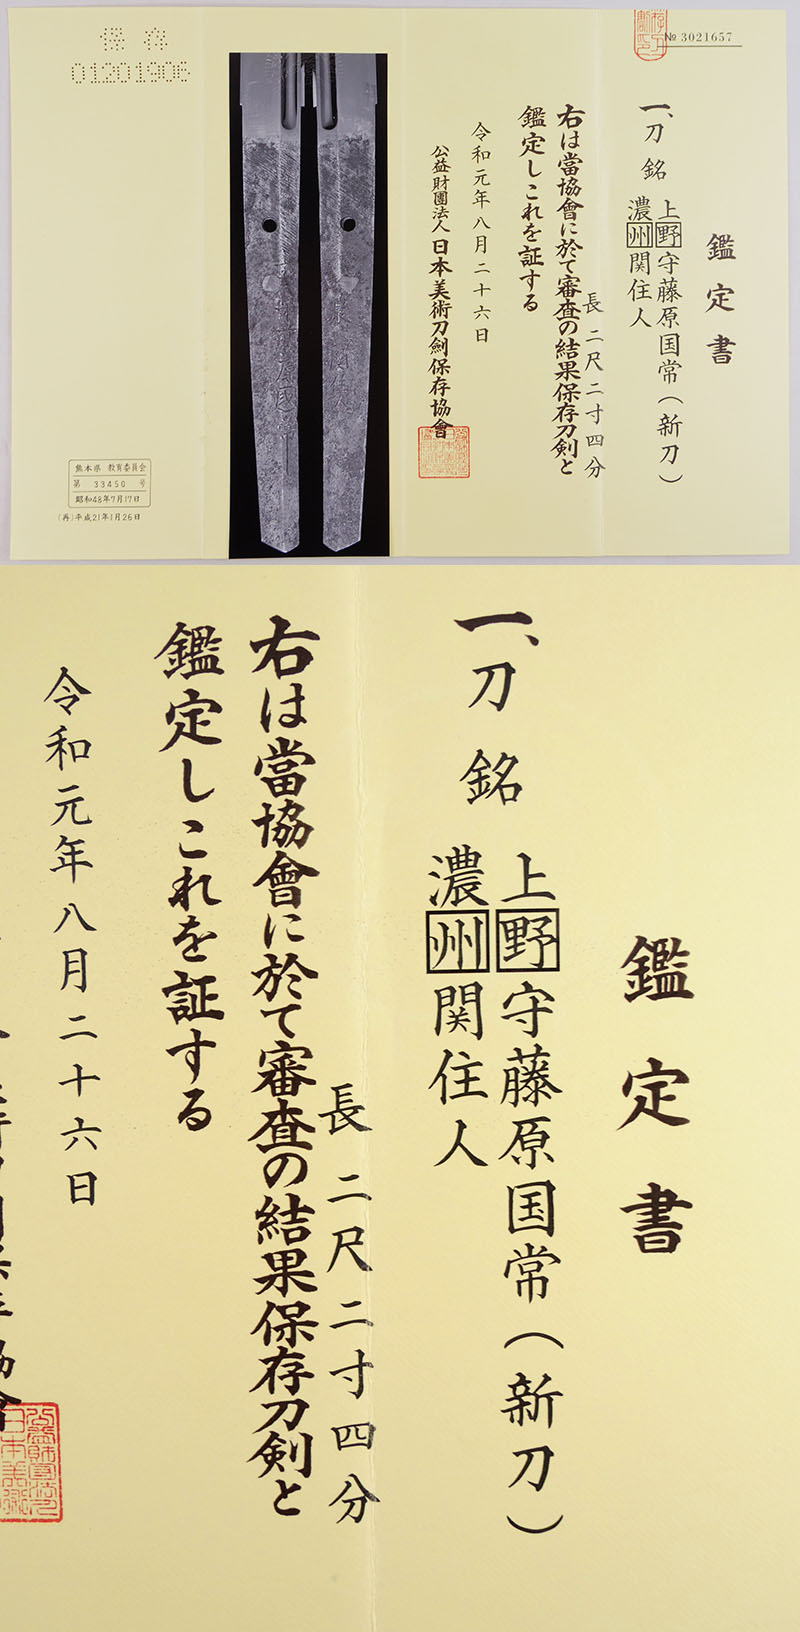 № 3021657
鑑定書
一、刀 銘 上野守藤原国常(新刀)
濃州関住人
長 二尺二寸四分
右は當協會に於て審査の結果保存刀剣と
鑑定しこれを証する
令和元年八月二十六日
公益財團法人 日本美術刀劍保存協會
保存
01201906
熊本県 教育委員会
第 33450 号
昭和48年7月17日
(再)平成21年1月26日
鑑定書
一、刀 銘 上野守藤原国常(新刀)
濃州関住人
長 二尺二寸四分
右は當協會に於て審査の結果保存刀剣と
鑑定しこれを証する
令和元年八月二十六日